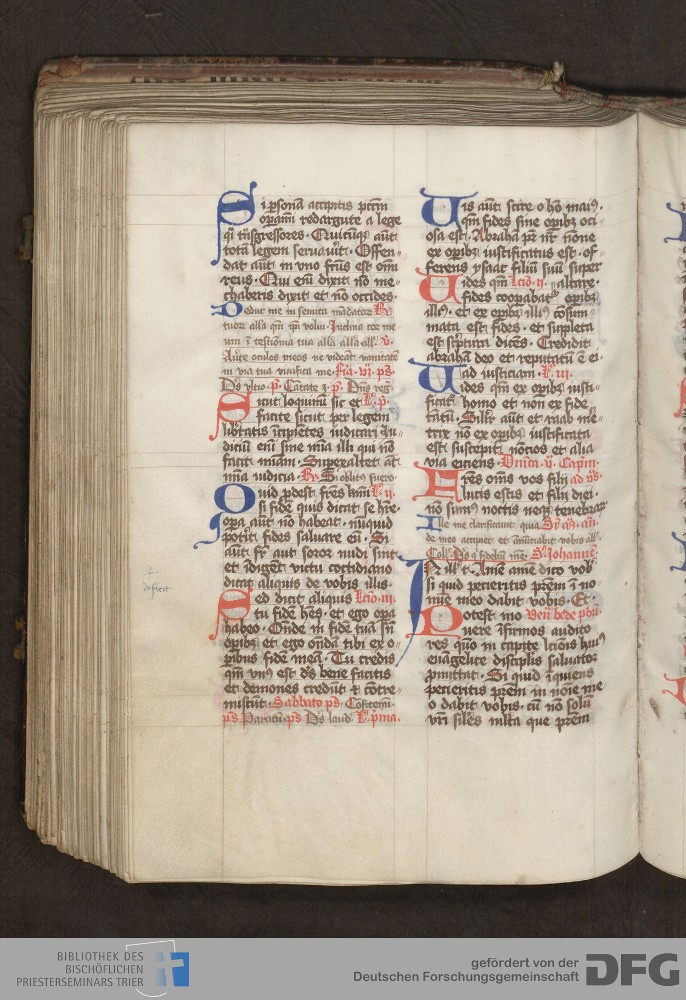 Si p̄sonā accipitis pctm̄
opam̄ī redargute a lege
q̄i tn̄sgressores · Quicūq̢ aūt
totā legem seruau̾it · Offen〃
dat aūt in vno fc̄us est om̄
reus · Qui em̄ dixit nō me〃
chaberis dixit et nō occides ·
Deduc me in semita mādatoꝝ
tuoꝝ alla q̄m ip̄m volui · Inclina cor me
um ī testīonia tua alla alla all̾ · v̄ ·
Au̾te oculos meos ne videāt vanitatē
in via tua viuifica me · F̄ia · vj · p̄s ·
Dс̄ vltio · p̄ · Cātate z̄ · p̄ · Dn̄s reg̾ ·
Sicut loquimī sic et L̄ · p̄ ·
facite sicut per legem
lib̾tatis īcipiētes iudicari Iu〃
diciū em̄ sine mīa illi qui nō
facit miām · Superaltet āt
mīa iudicia · R̄ · Si oblitꝰ fuero ·
Quid ꝓdest fr̄es km̄i L̄ · ij ·
si fidē quis dicat se hr̄e ·
opa aūt nō habeat · nūquid
pot̾it fides saluare eū · Si
aūt fr̄ aut soror nudi sint
et īdigēt victu cottidiano
dicat aliquis de vobis illis ·
Sed dicit aliquis Lc̄io · iij ·
tu fidē hēs · et ego opa
habeo · Onde m̄ fidē tuā sīn
opībꝰ et ego ondā tibi ex o〃
p̄ibus fidē meā · Tu credis
qm̄ vnꝰ est dс̄ bene facitis
et demones credūt et cōtre〃
miscūt · Sabbato p̄s · Cōfitemī ·
p̄s Paratū · p̄s Dс̄ laud̄ · L̄ · p̄ma ·
Uis aūt scire o hō inaīs ·
qm̄ fides sine opībꝰ oci〃
osa est · Abrahā p̄r nr̄ nōne
ex opībꝰ iustificatus est · of〃
ferens ysaac filiū suū super
Uides qm̄ Lc̄io · ij · altare ·
fides coopabat̾ opībꝰ
illiꝰ · et ex opībꝰ illiꝰ cōsum〃
mata est fides · et suppleta
est sc̾ptura dicēs · Credidit
abrahā deo et reputatū ē ei ·
ad iusticiam · L̄ · iij ·
Uides qm̄ ex opībꝰ iusti〃
ficat̾ homo et non ex fide
tātū · Silīt̾ aūt et raab me〃
trix nō ex opībꝰ iustificata
est suscepit nōcios et alia
via eiciens · Dn̄ica · v̄ · Capim̄ ·
Fr̄es om̄s vos filij ad vs̄ ·
lucis estis et filij diei ·
nō sumꝰ noctis neq̢ tenebraꝝ
Ille me clarificauit quia
de meo accipiet et ānūciabit vobis all̾ ·
Coll̾ · Dс̄ q̾ fideliū mē · S̄ · Iohannē ·
IN ill̾ t̄ · Amē amē dico vob̾
si quid pecieritis p̄rem ī no
mīe meo dabit vobis · Et ·
Potest mo Ven̄ bede pb̾ri ·
uere īfirmos audito
res quō in capite lcīois huiꝰ
euāgelice disciplīs saluator
ꝓmittit · Si quid īquiens
pecieritis p̄rem in noīe me
o dabit vobis · cū nō solū
vr̄i siles m̄lta que p̄rem
deficit
BIBLIOTHEK DES
BISCHÖFLICHEN
PRIESTERSEMINARS TRIER
gefördert von der
Deutschen Forschungsgemeinschaft
DFG